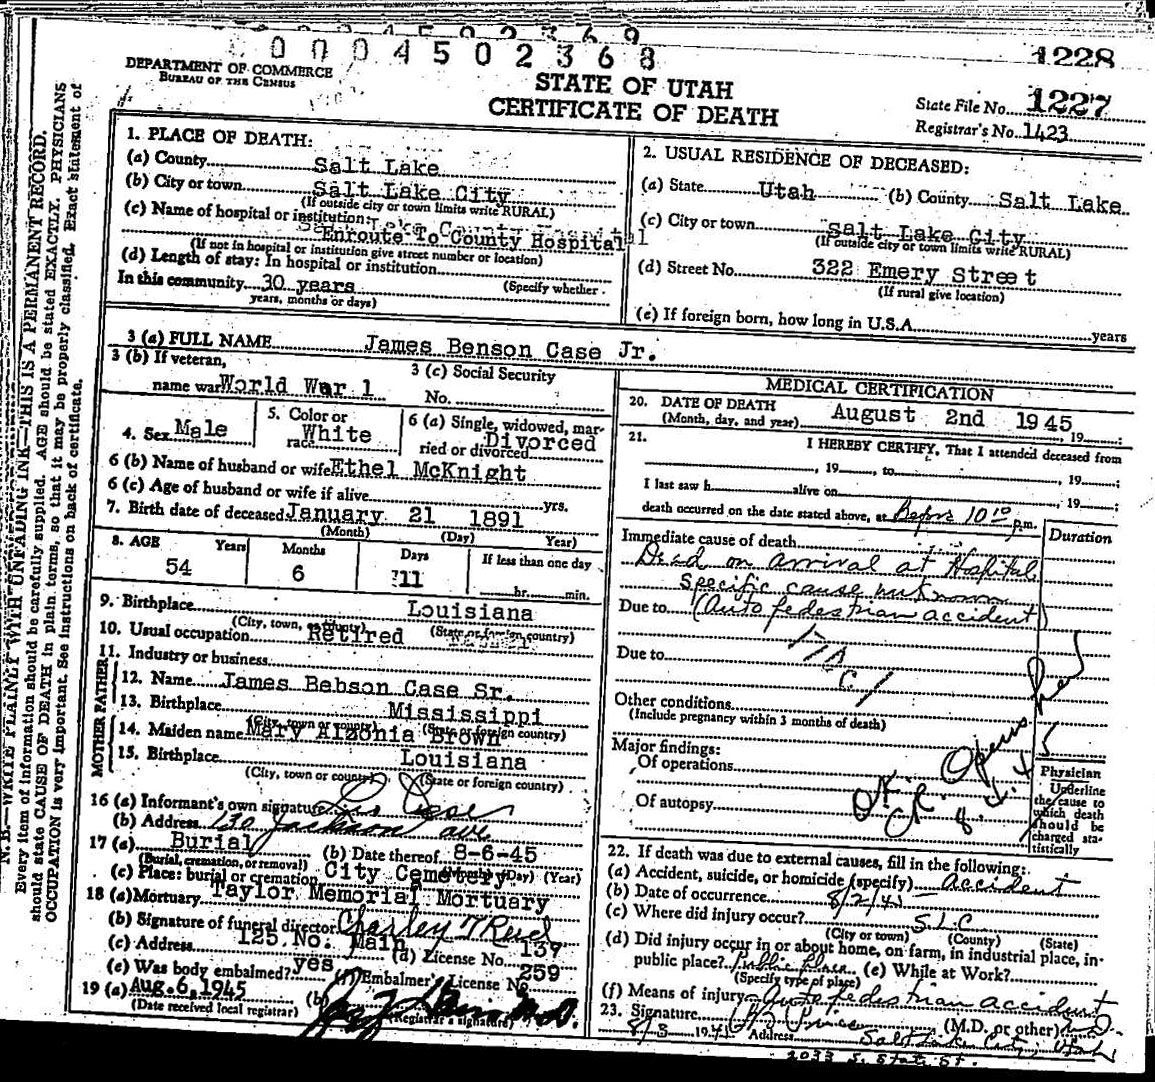 00004502368
1228
DEPARTMENT OF COMMERCE
BUREAU OF THE CENSUS
STATE OF UTAH
CERTIFICATE OF DEATH
State File No. 1227
Registrar's No. 1423
N. B.—WRITE PLAINLY WITH UNFADING INK—THIS IS A PERMANENT RECORD.
Every item of information should be carefully supplied. AGE should be stated EXACTLY. PHYSICIANS
should state CAUSE OF DEATH in plain terms, so that it may be properly classified. Exact statement of
OCCUPATION is very important. See instructions on back of certificate.
1. PLACE OF DEATH:
(a) County Salt Lake
(b) City or town Salt Lake City
(If outside city or town limits write RURAL)
(c) Name of hospital or institution:
Enroute To County Hospital
(If not in hospital or institution give street number or location)
(d) Length of stay: In hospital or institution
In this community 30 years (Specify whether
years, months or days)
2. USUAL RESIDENCE OF DECEASED:
(a) State Utah (b) County Salt Lake
(c) City or town Salt Lake City
(If outside city or town limits write RURAL)
(d) Street No. 322 Emery Street
(If rural give location)
(e) If foreign born, how long in U.S.A. years
3 (a) FULL NAME James Benson Case Jr.
3 (b) If veteran,
name war World War 1
3 (c) Social Security
No.
4. Sex Male
5. Color or
race White
6 (a) Single, widowed, mar-
ried or divorced Divorced
6 (b) Name of husband or wife Ethel McKnight
6 (c) Age of husband or wife if alive yrs.
7. Birth date of deceased January 21 1891
(Month) (Day) Year)
8. AGE Years Months Days If less than one day
54 6 11 hr. min.
9. Birthplace Louisiana
(City, town, or county) (State or foreign country)
10. Usual occupation Retired
11. Industry or business
FATHER
12. Name James Bebson Case Sr.
13. Birthplace Mississippi
(City, town or county) (State or foreign country)
MOTHER
14. Maiden name Mary Alzonia Brown
15. Birthplace Louisiana
(City, town or county) (State or foreign country)
16 (a) Informant's own signature
(b) Address 130 Jackson ave
17 (a) Burial (b) Date thereof 8-6-45
(Burial, cremation, or removal) (Month) (Day) (Year)
(c) Place: burial or cremation City Cemetery
18 (a) Mortuary Taylor Memorial Mortuary
(b) Signature of funeral director Charley
(c) Address 125 No. Main (d) License No. 137
(e) Was body embalmed? yes (f) Embalmer's License No. 259
19 (a) Aug. 6, 1945 (b)
(Date received local registrar) (Registrar's signature)
MEDICAL CERTIFICATION
20. DATE OF DEATH August 2nd 1945
(Month, day, and year) , 19 ;
21. I HEREBY CERTIFY, That I attended deceased from
, 19 , to , 19 ;
I last saw h alive on , 19 ;
death occurred on the date stated above, at Before 10 10 p.m.
Duration
Immediate cause of death
Dead on arrival at Hospital
specific cause unknown
Due to (Auto pedestrian accident)
Due to
Other conditions
(Include pregnancy within 3 months of death)
Major findings:
Of operations
Of autopsy
Physician
Underline
the cause to
which death
should be
charged sta-
tistically
22. If death was due to external causes, fill in the following:
(a) Accident, suicide, or homicide (specify) Accident
(b) Date of occurrence 8/2/45
(c) Where did injury occur? S.L.C
(City or town) (County) (State)
(d) Did injury occur in or about home, on farm, in industrial place, in
public place? Public Place (e) While at Work?
(Specify type of place)
(f) Means of injury Auto pedestrian accident
23. Signature (M.D. or other) M.D.
8/3 1945 Address Salt Lake City, Utah
2033 S. State St.